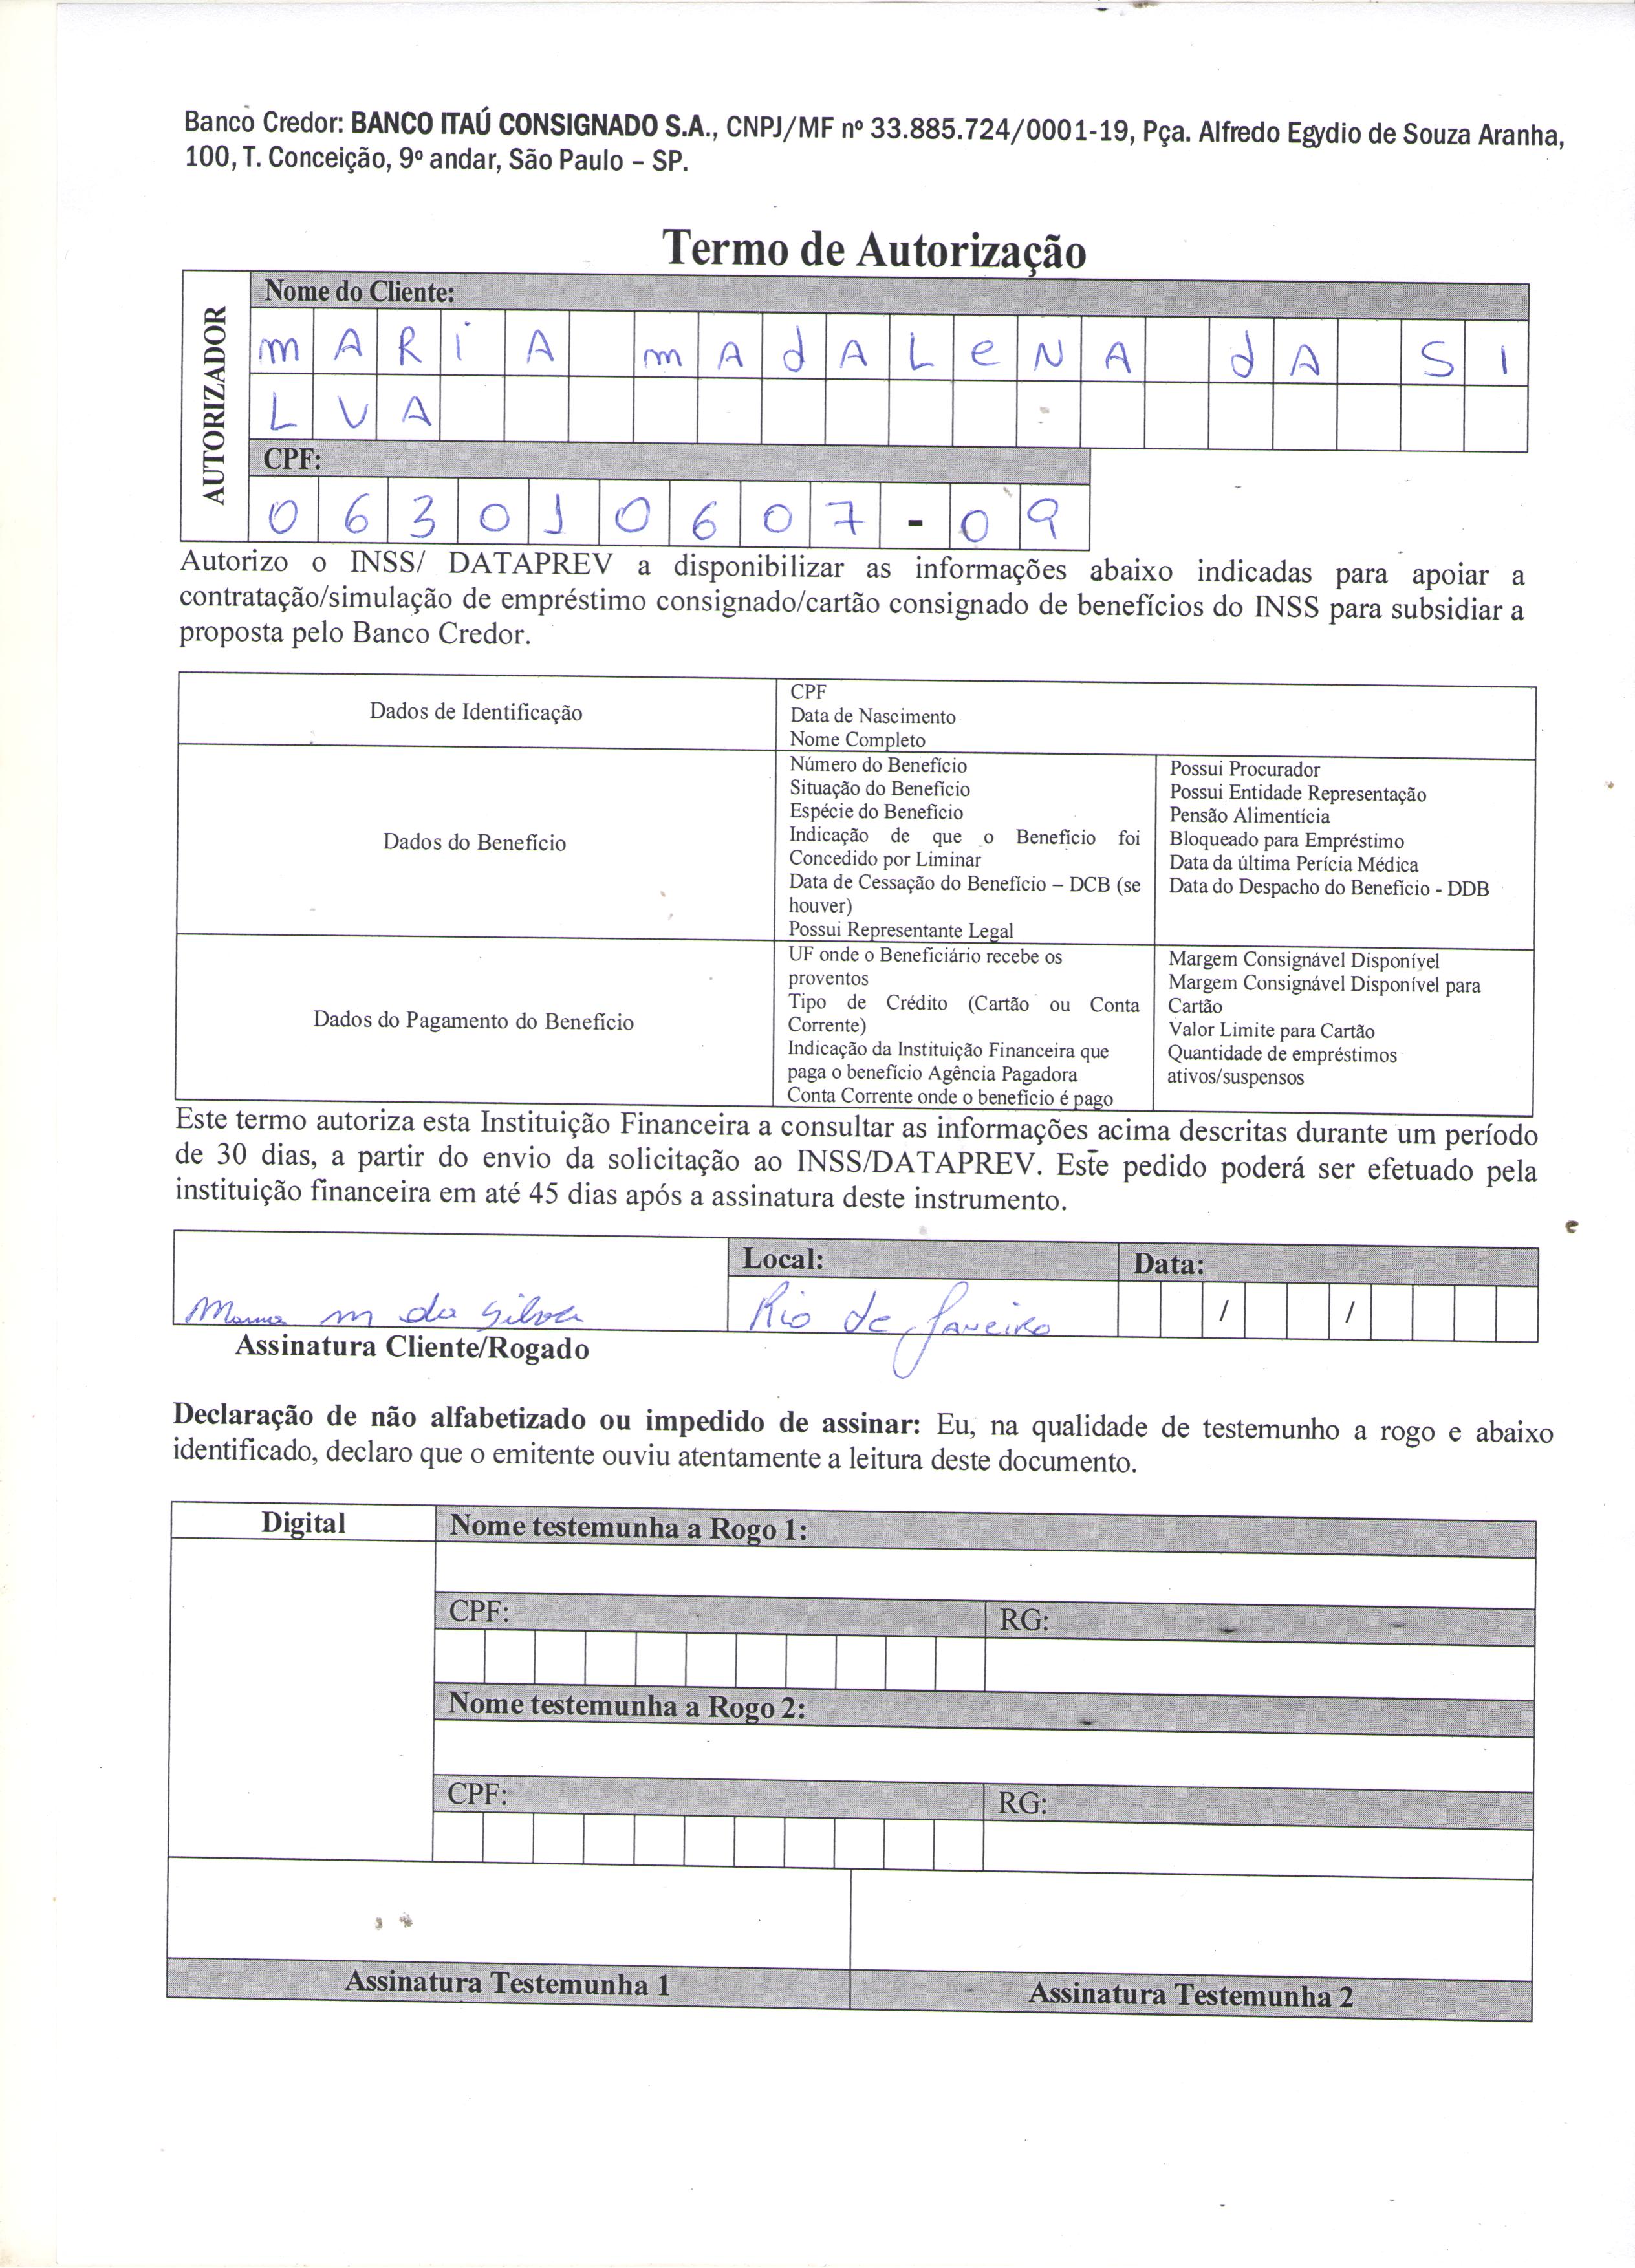 Banco Credor: BANCO ITAÚ CONSIGNADO S.A., CNPJ/MF nº 33.885.724/0001-19, Pça. Alfredo Egydio de Souza Aranha,
100, T. Conceição, 9º andar, São Paulo – SP.
Termo de Autorização
AUTORIZADOR
Nome do Cliente:
mARiA mAdALeNA dA SI
LVA
CPF:
063010607-09
Autorizo o INSS/ DATAPREV a disponibilizar as informações abaixo indicadas para apoiar a
contratação/simulação de empréstimo consignado/cartão consignado de benefícios do INSS para subsidiar a
proposta pelo Banco Credor.
Dados de Identificação
CPF
Data de Nascimento
Nome Completo
Dados do Benefício
Número do Benefício
Situação do Benefício
Espécie do Benefício
Indicação de que o Benefício foi
Concedido por Liminar
Data de Cessação do Benefício – DCB (se
houver)
Possui Representante Legal
Possui Procurador
Possui Entidade Representação
Pensão Alimentícia
Bloqueado para Empréstimo
Data da última Perícia Médica
Data do Despacho do Benefício - DDB
Dados do Pagamento do Benefício
UF onde o Beneficiário recebe os
proventos
Tipo de Crédito (Cartão ou Conta
Corrente)
Indicação da Instituição Financeira que
paga o benefício Agência Pagadora
Conta Corrente onde o benefício é pago
Margem Consignável Disponível
Margem Consignável Disponível para
Cartão
Valor Limite para Cartão
Quantidade de empréstimos
ativos/suspensos
Este termo autoriza esta Instituição Financeira a consultar as informações acima descritas durante um período
de 30 dias, a partir do envio da solicitação ao INSS/DATAPREV. Este pedido poderá ser efetuado pela
instituição financeira em até 45 dias após a assinatura deste instrumento.
Local:
Data:
Maria m da Silva
Rio de Janeiro
/ /
Assinatura Cliente/Rogado
Declaração de não alfabetizado ou impedido de assinar: Eu, na qualidade de testemunho a rogo e abaixo
identificado, declaro que o emitente ouviu atentamente a leitura deste documento.
Digital
Nome testemunha a Rogo 1:
CPF:
RG:
Nome testemunha a Rogo 2:
CPF:
RG:
Assinatura Testemunha 1
Assinatura Testemunha 2